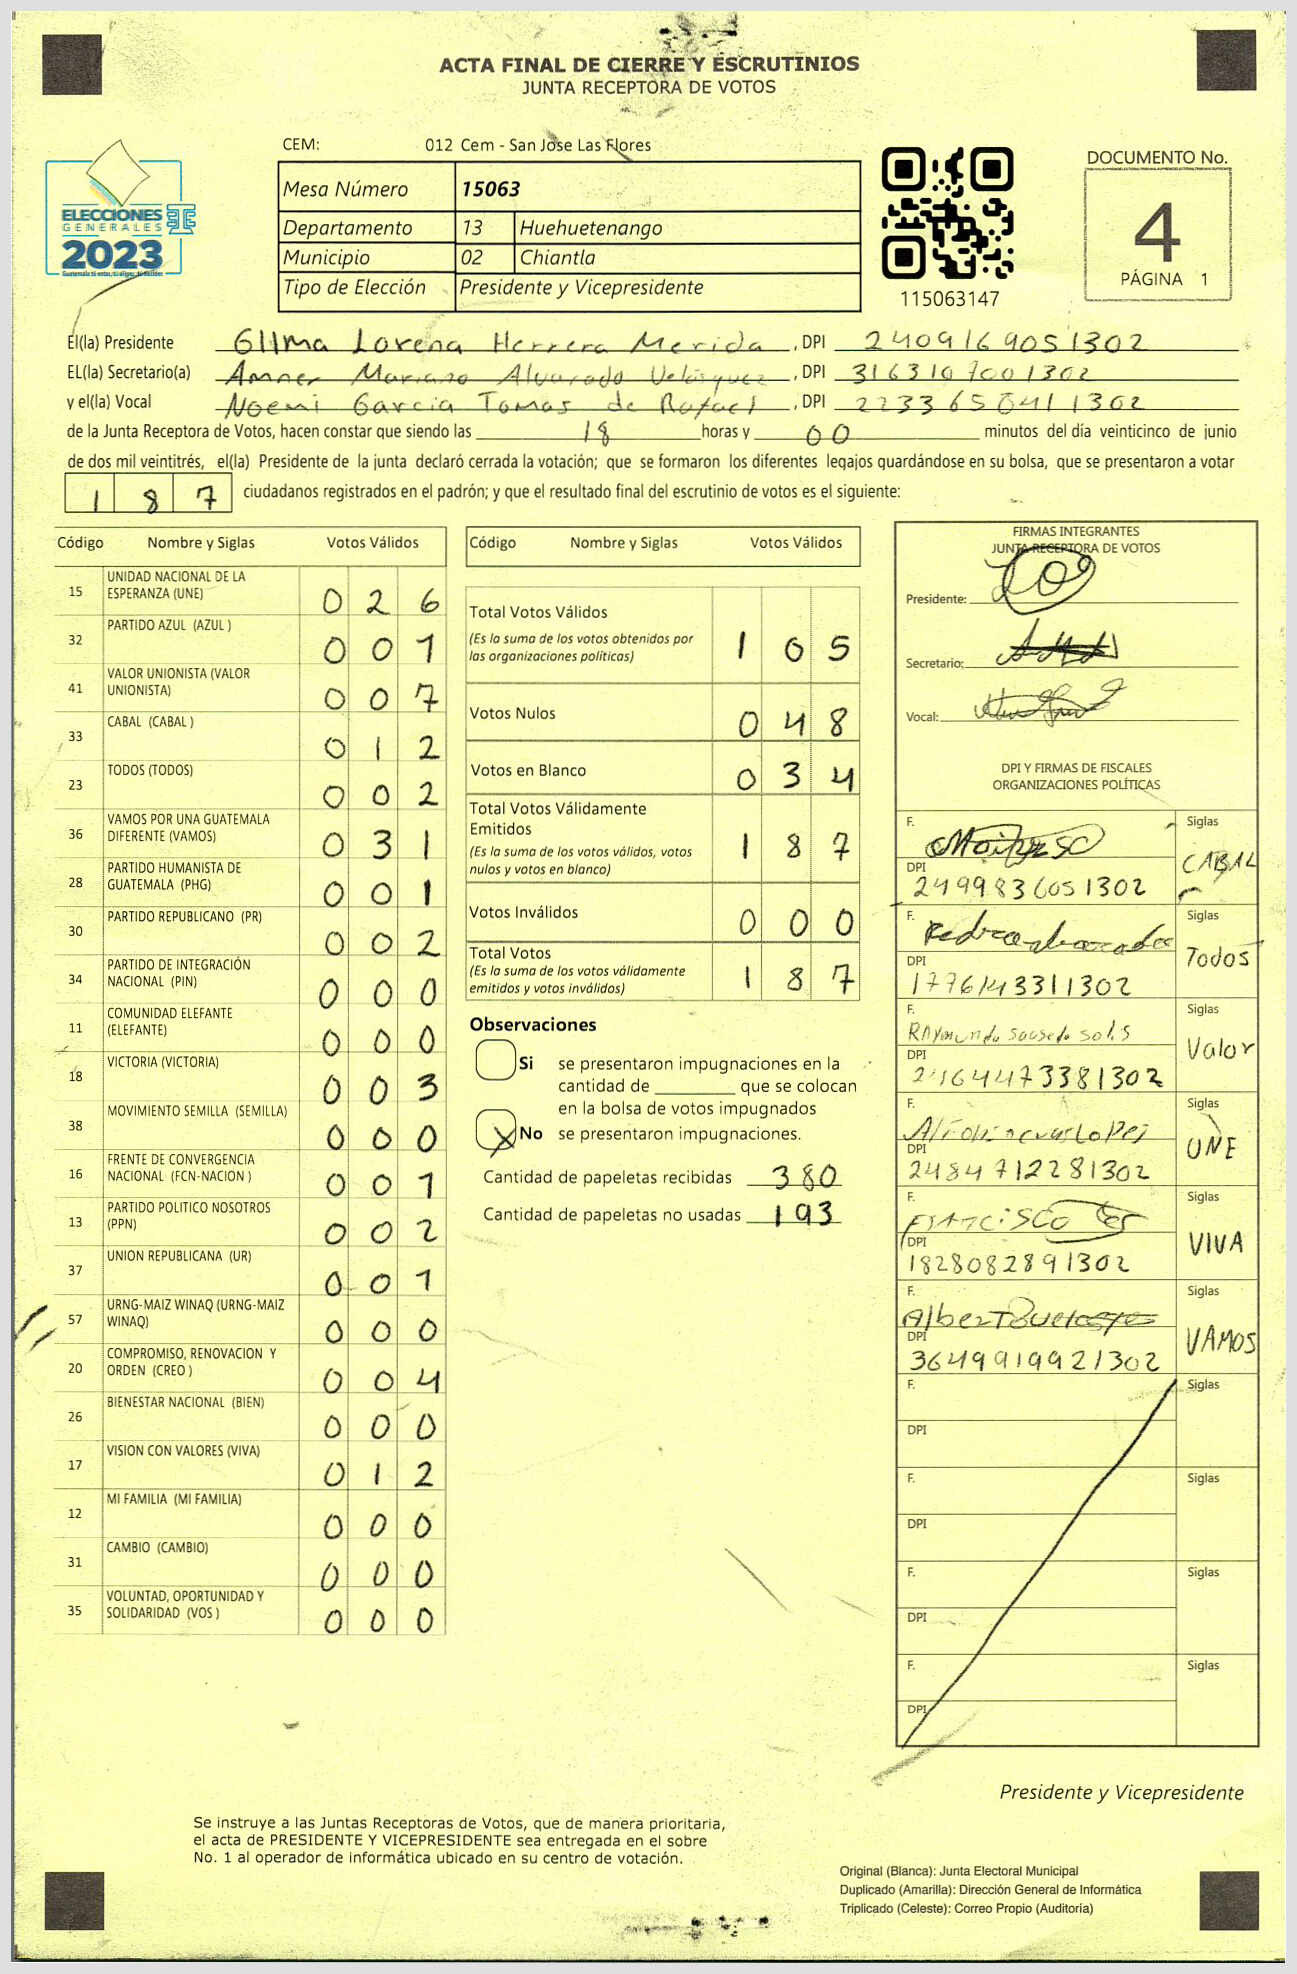 ACTA FINAL DE CIERRE Y ESCRUTINIOS
JUNTA RECEPTORA DE VOTOS
CEM: 012 Cem - San Jose Las Flores
ELECCIONES
GENERALES
2023
Mesa Número 15063
Departamento 13 Huehuetenango
Municipio 02 Chiantla
Tipo de Elección Presidente y Vicepresidente
115063147
DOCUMENTO No.
4
PÁGINA 1
El(la) Presidente Gilma Lorena Herrera Merida, DPI 2409169051302
EL(la) Secretario(a) Amner Mariano Alvarado Velásquez, DPI 3163107001302
y el(la) Vocal Noemi Garcia Tomas de Rafael, DPI 2233650411302
de la Junta Receptora de Votos, hacen constar que siendo las 18 horas y 00 minutos del día veinticinco de junio
de dos mil veintitrés, el(la) Presidente de la junta declaró cerrada la votación; que se formaron los diferentes legajos guardándose en su bolsa, que se presentaron a votar
187 ciudadanos registrados en el padrón; y que el resultado final del escrutinio de votos es el siguiente:
Código Nombre y Siglas Votos Válidos
15 UNIDAD NACIONAL DE LA ESPERANZA (UNE) 026
32 PARTIDO AZUL (AZUL ) 001
41 VALOR UNIONISTA (VALOR UNIONISTA) 007
33 CABAL (CABAL ) 012
23 TODOS (TODOS) 002
36 VAMOS POR UNA GUATEMALA DIFERENTE (VAMOS) 031
28 PARTIDO HUMANISTA DE GUATEMALA (PHG) 001
30 PARTIDO REPUBLICANO (PR) 002
34 PARTIDO DE INTEGRACIÓN NACIONAL (PIN) 000
11 COMUNIDAD ELEFANTE (ELEFANTE) 000
18 VICTORIA (VICTORIA) 003
38 MOVIMIENTO SEMILLA (SEMILLA) 000
16 FRENTE DE CONVERGENCIA NACIONAL (FCN-NACION ) 001
13 PARTIDO POLITICO NOSOTROS (PPN) 002
37 UNION REPUBLICANA (UR) 001
57 URNG-MAIZ WINAQ (URNG-MAIZ WINAQ) 000
20 COMPROMISO, RENOVACION Y ORDEN (CREO ) 004
26 BIENESTAR NACIONAL (BIEN) 000
17 VISION CON VALORES (VIVA) 012
12 MI FAMILIA (MI FAMILIA) 000
31 CAMBIO (CAMBIO) 000
35 VOLUNTAD, OPORTUNIDAD Y SOLIDARIDAD (VOS ) 000
Código Nombre y Siglas Votos Válidos
Total Votos Válidos 105
(Es la suma de los votos obtenidos por
las organizaciones políticas)
Votos Nulos 048
Votos en Blanco 034
Total Votos Válidamente
Emitidos 187
(Es la suma de los votos válidos, votos
nulos y votos en blanco)
Votos Inválidos 000
Total Votos 187
(Es la suma de los votos válidamente
emitidos y votos inválidos)
Observaciones
Si se presentaron impugnaciones en la
cantidad de ________ que se colocan
en la bolsa de votos impugnados
X No se presentaron impugnaciones.
Cantidad de papeletas recibidas 380
Cantidad de papeletas no usadas 193
FIRMAS INTEGRANTES
JUNTA RECEPTORA DE VOTOS
Presidente:
Secretario:
Vocal:
DPI Y FIRMAS DE FISCALES
ORGANIZACIONES POLÍTICAS
F. Siglas
DPI 2499836051302 CABAL
F. Siglas
DPI 1776143311302 Todos
F. Raymundo Sauseda Solis Siglas
DPI 24164473381302 Valor
F. Siglas
DPI 2484712281302 UNE
F. Francisco Siglas
DPI 1828082891302 VIVA
F. Alberto Siglas
DPI 3649919921302 VAMOS
F. Siglas
DPI
F. Siglas
DPI
F. Siglas
DPI
F. Siglas
DPI
Presidente y Vicepresidente
Se instruye a las Juntas Receptoras de Votos, que de manera prioritaria,
el acta de PRESIDENTE Y VICEPRESIDENTE sea entregada en el sobre
No. 1 al operador de informática ubicado en su centro de votación.
Original (Blanca): Junta Electoral Municipal
Duplicado (Amarilla): Dirección General de Informática
Triplicado (Celeste): Correo Propio (Auditoria)